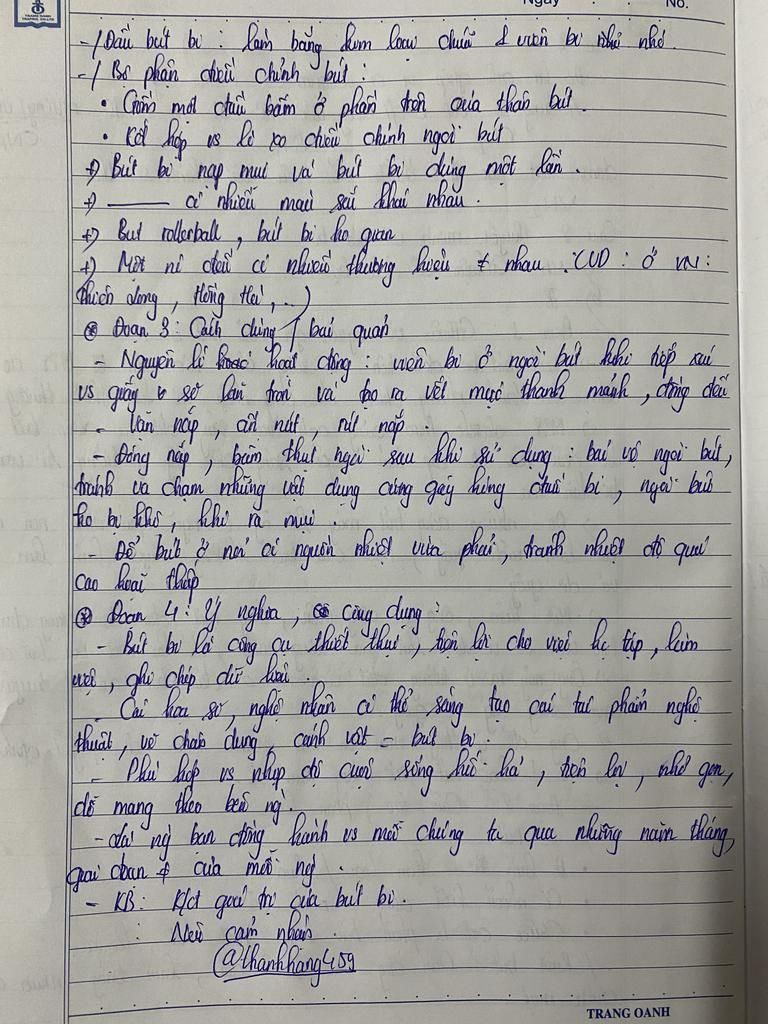 Ngày . . No.
-/ Đầu bút bi : làm bằng kim loại chứa 1 viên bi nhỏ nhỏ.
-/ Bộ phận điều chỉnh bút :
• Gồm một đầu bấm ở phần trên của thân bút.
• Kết hợp vs lò xo điều chỉnh ngòi bút
+) Bút bi nạp mực và bút bi dùng một lần.
+) ——— có nhiều màu sắc khác nhau.
+) Bút rollerball, bút bi ko quan
+) Một nc đều có nhiều thương hiệu ≠ nhau. VD : ở VN :
Thiên Long, Hồng Hà,...)
⊛ Đoạn 3 : Cách dùng / bảo quản
- Nguyên lí hoạt động : viên bi ở ngòi bút khi tiếp xúc
vs giấy sẽ lăn tròn và tạo ra vết mực thanh mảnh, đồng đều
- Vặn nắp, ấn nút, rút nắp.
- Đóng nắp, bấm thụt ngòi sau khi sử dụng : bảo vệ ngòi bút,
tránh va chạm những vật dụng cứng gây hỏng đầu bi, ngòi bút
ko bị khô, khó ra mực.
- Để bút ở nơi có nguồn nhiệt vừa phải, tránh nhiệt độ quá
cao hoặc thấp
⊛ Đoạn 4 : Ý nghĩa, công dụng :
- Bút bi là công cụ thiết thực, tiện lợi cho việc học tập, làm
việc, ghi chép dữ liệu.
- Các họa sĩ, nghệ nhân có thể sáng tạo các tác phẩm nghệ
thuật, vẽ chân dung, cảnh vật = bút bi.
- Phù hợp vs nhịp độ cuộc sống hối hả, tiện lợi, nhỏ gọn,
dễ mang theo bên ng.
- Là ng bạn đồng hành vs mỗi chúng ta qua những năm tháng,
giai đoạn ≠ của mỗi ng.
- KB : Kđ giá trị của bút bi.
: Nêu cảm nhận.
@thanhhang459
TRANG OANH